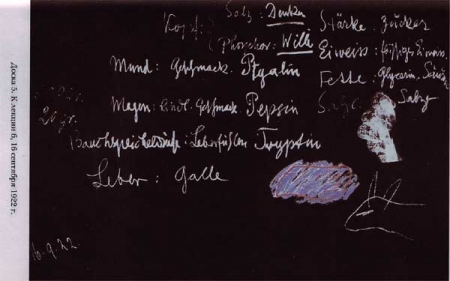 Salz: Denken
Kopf:
Phosphor: Wille
Mund: Geschmack. Ptyalin
Magen: Geschmack. Pepsin
20 gr.
Bauchspeicheldrüse: Trypsin
Leber: Galle
Stärke. Zucker
Eiweiss: flüssiges Eiweiss.
Fette: Glycerin. Säure
Salze Salze
16.9.22
Доска 5. К лекции 6, 16 сентября 1922 г.